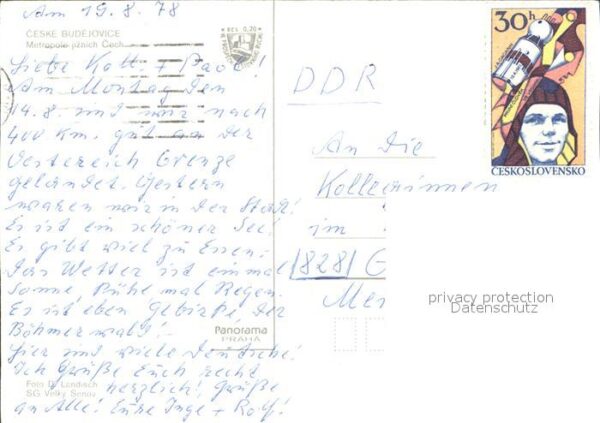 Am 19.8.78
ČESKÉ BUDĚJOVICE
Metropole jižních Čech
KčS 0,20
Liebe Koll. + Paul!
Am Montag den
14.8. sind wir nach
400 Km. gut an der
Oestereich Grenze
gelandet. Gestern
waren wir in der Stadt!
Es ist ein schöner See!
Es gibt viel zu Essen!
Das Wetter ist einmal
Sonne, Kühe mal Regen.
Es ist eben Gebirge, der
Böhmerwald!
Hier sind viele Deutsche!
Ich Grüße Euch recht
herzlich! Grüße
an Alle! Eure Inge + Rolf!
Foto D. Landisch
SG Velký Šenov
Panorama
PRAHA
30h
ČESKOSLOVENSKO
DDR
An die
Kolleginnen
im
(828) G
privacy protection
Datenschutz